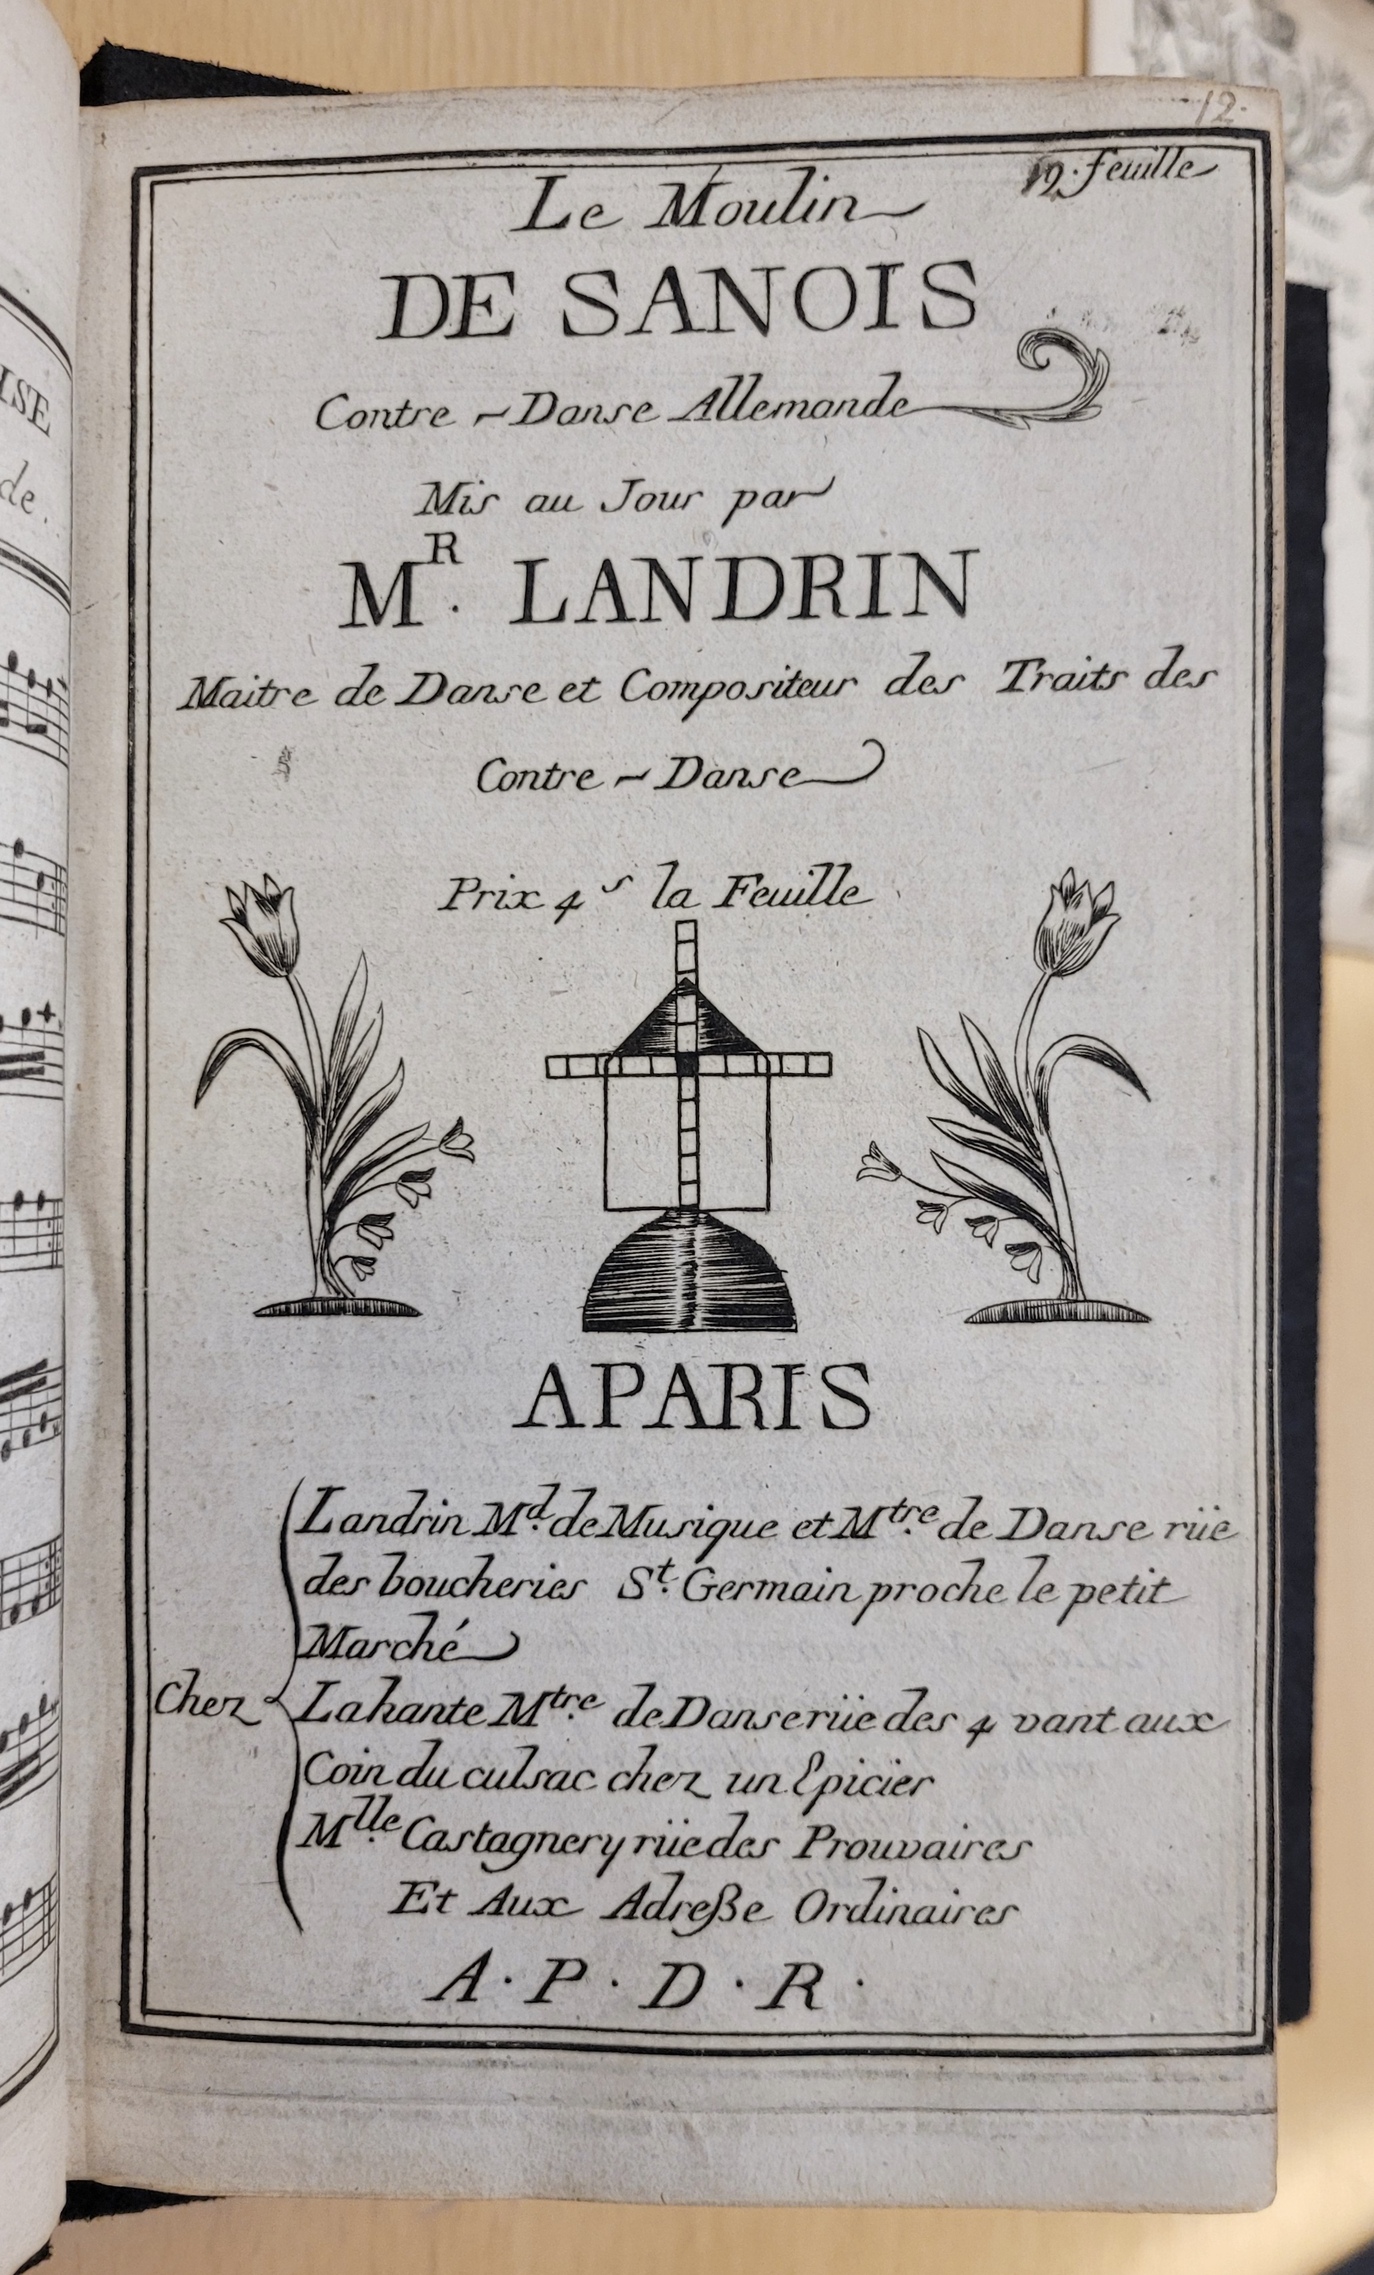 12.
12. feuille
Le Moulin
DE SANOIS
Contre - Danse Allemande
Mis au Jour par
M.R LANDRIN
Maitre de Danse et Compositeur des Traits des
Contre - Danse
Prix 4s la Feuille
APARIS
Landrin Md. de Musique et Mtre. de Danse rüe
des boucheries St. Germain proche le petit
Marché
Chez
Lahante Mtre. de Danse rüe des 4 vant aux
Coin du culsac chez un Epicier
Mlle. Castagnery rüe des Prouvaires
Et Aux Adreße Ordinaires
A. P. D. R.
ISE
de.